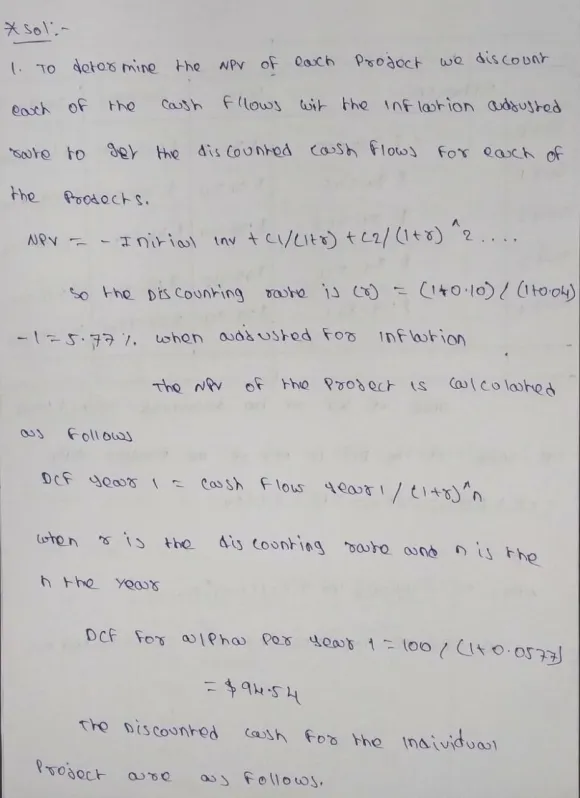 * Sol:-
1. To determine the NPV of each Project we discount
each of the cash fllows wit the inflation adjusted
rate to get the discounted cash flows for each of
the Projects.
NPV = - Initial inv + C1/(1+r) + C2/(1+r)^2....
So the Discounting rate is (r) = (1+0.10)/(1+0.04)
-1 = 5.77%. when adjusted for inflation
The NPV of the Project is calculated
as follows
DCF year 1 = cash flow year 1 / (1+r)^n
when r is the discounting rate and n is the
n the year
DCF for alpha Per year 1 = 100 / (1+0.0577)
= $94.54
The Discounted cash for the individual
Project are as follows.